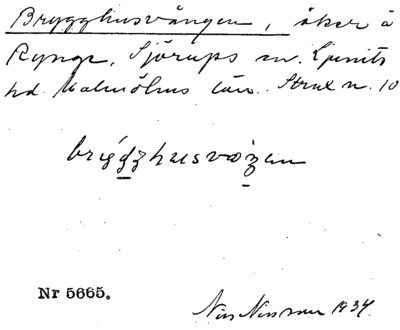 Brygghusvången, åker å
Rynge, Sjörups sn. Ljunits
hd. Malmöhus län. Strax n. 10
Nr 5665.
Nils Nilsson 1934.